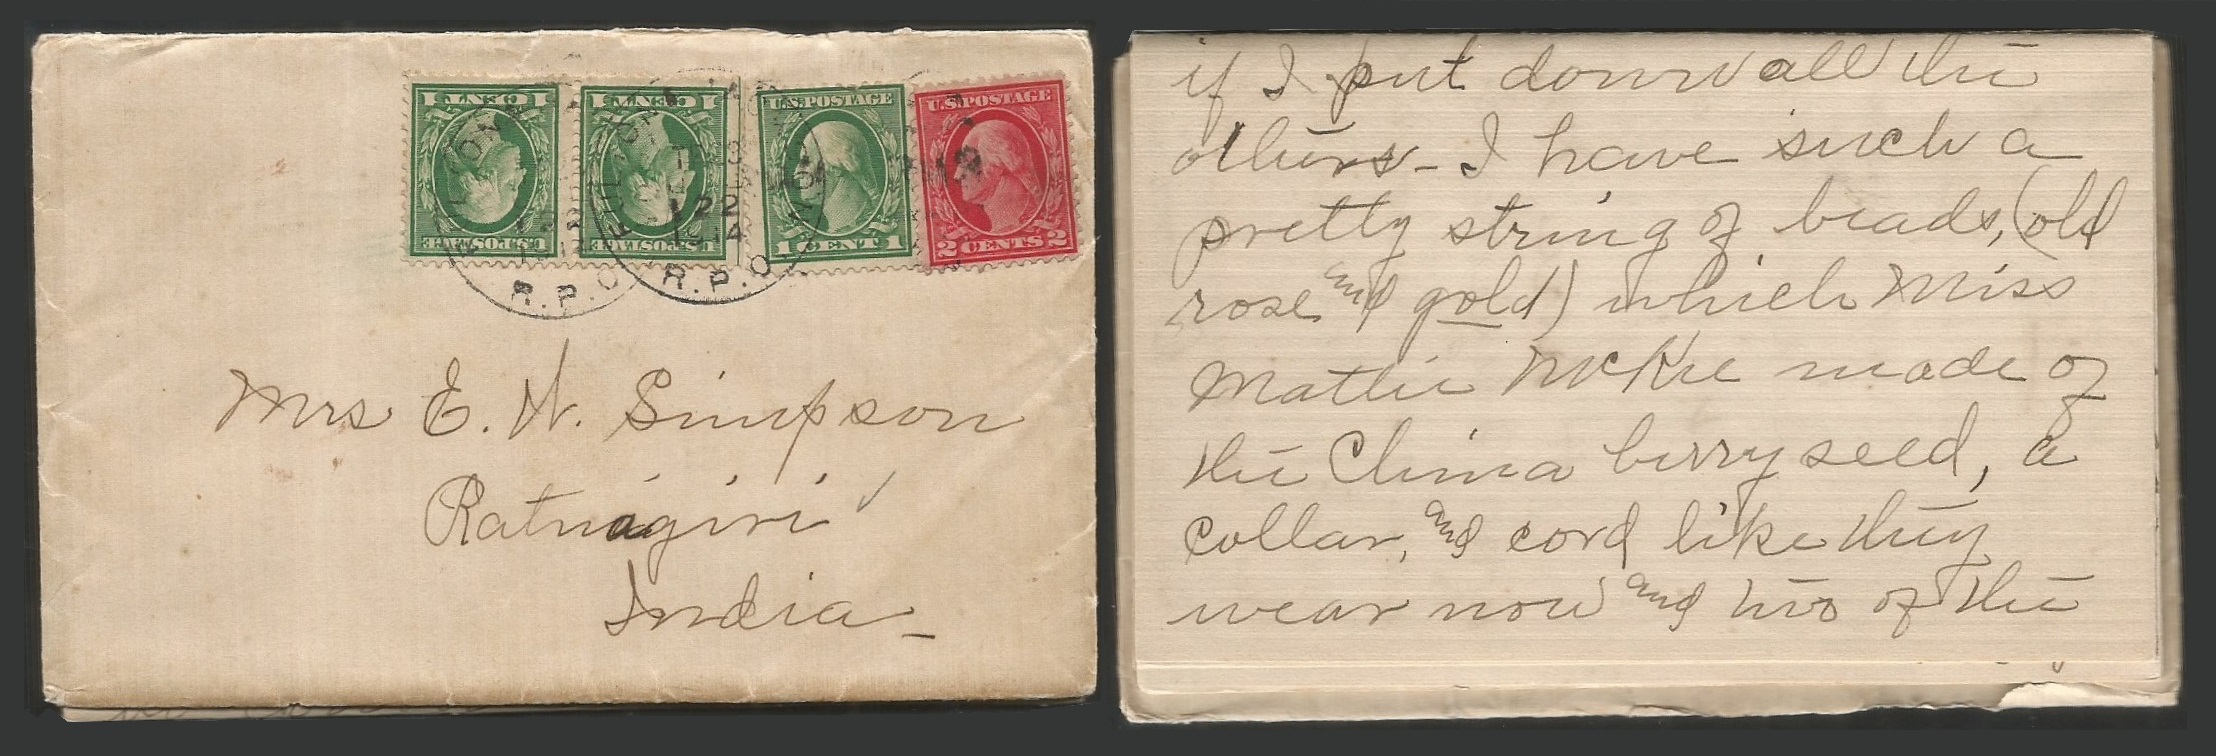 1 CENT 1
U.S. POSTAGE
1 CENT 1
U.S. POSTAGE
U.S. POSTAGE
1 CENT 1
U.S. POSTAGE
2 CENTS 2
R.P.O.
122
R.P.O.
Mrs E. W. Simpson
Ratnagiri
India
if I put down all the
others - I have such a
pretty string of beads, (old
rose and gold) which Miss
Mattie McKee made of
the China berry seed, a
collar, and cord like they
wear now and two of the